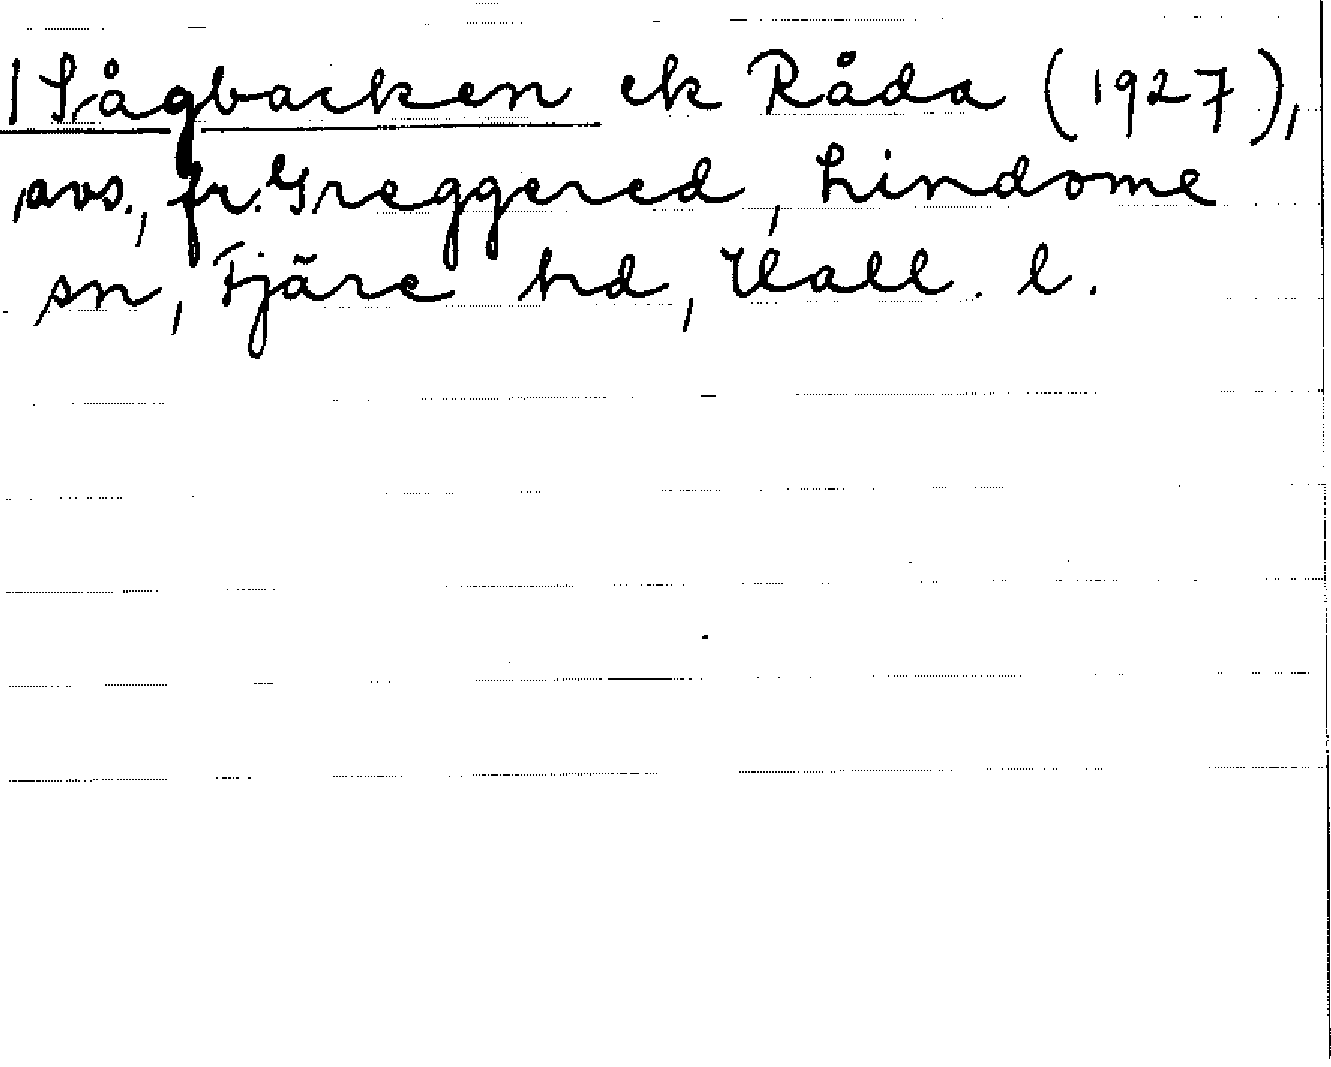 | Sågbacken ek Råda (1927),
avs., fr. Greggered, Lindome
sn, Fjäre hd, Hall. l.